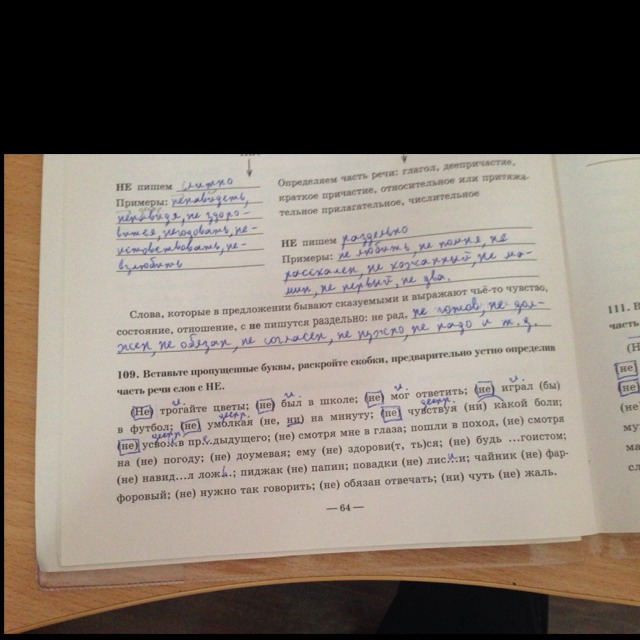 НЕ пишем слитно
Примеры: ненавидеть,
ненавидя, не здоро-
вится, негодовать, не-
истовствовать, не-
взлюбить
Определяем часть речи: глагол, деепричастие,
краткое причастие, относительное или притяжа-
тельное прилагательное, числительное
НЕ пишем раздельно
Примеры: не любить, не помня, не
рассказан, не кожаный, не ма-
мин, не первый, не два.
Слова, которые в предложении бывают сказуемыми и выражают чьё-то чувство,
состояние, отношение, с не пишутся раздельно: не рад, не готов, не дол-
жен, не обязан, не согласен, не нужно, не надо и т. д.
109. Вставьте пропущенные буквы, раскройте скобки, предварительно устно определив
часть речи слов с НЕ.
(Не) трогайте цветы; (не) был в школе; (не) мог ответить; (не) играл (бы)
в футбол; (не) умолкая (не, ни) на минуту; (не) чувствуя (ни) какой боли;
(не) усвоив пр...дыдущего; (не) смотря мне в глаза; пошли в поход, (не) смотря
на (не) погоду; (не) доумевая; ему (не) здорови(т, ть)ся; (не) будь ...гоистом;
(не) навид...л лож..; пиджак (не) папин; повадки (не) лис...и; чайник (не) фар-
форовый; (не) нужно так говорить; (не) обязан отвечать; (ни) чуть (не) жаль.
— 64 —
111. В
часть
(Н
(не)
(не)
(не
му
(не
ма
сл